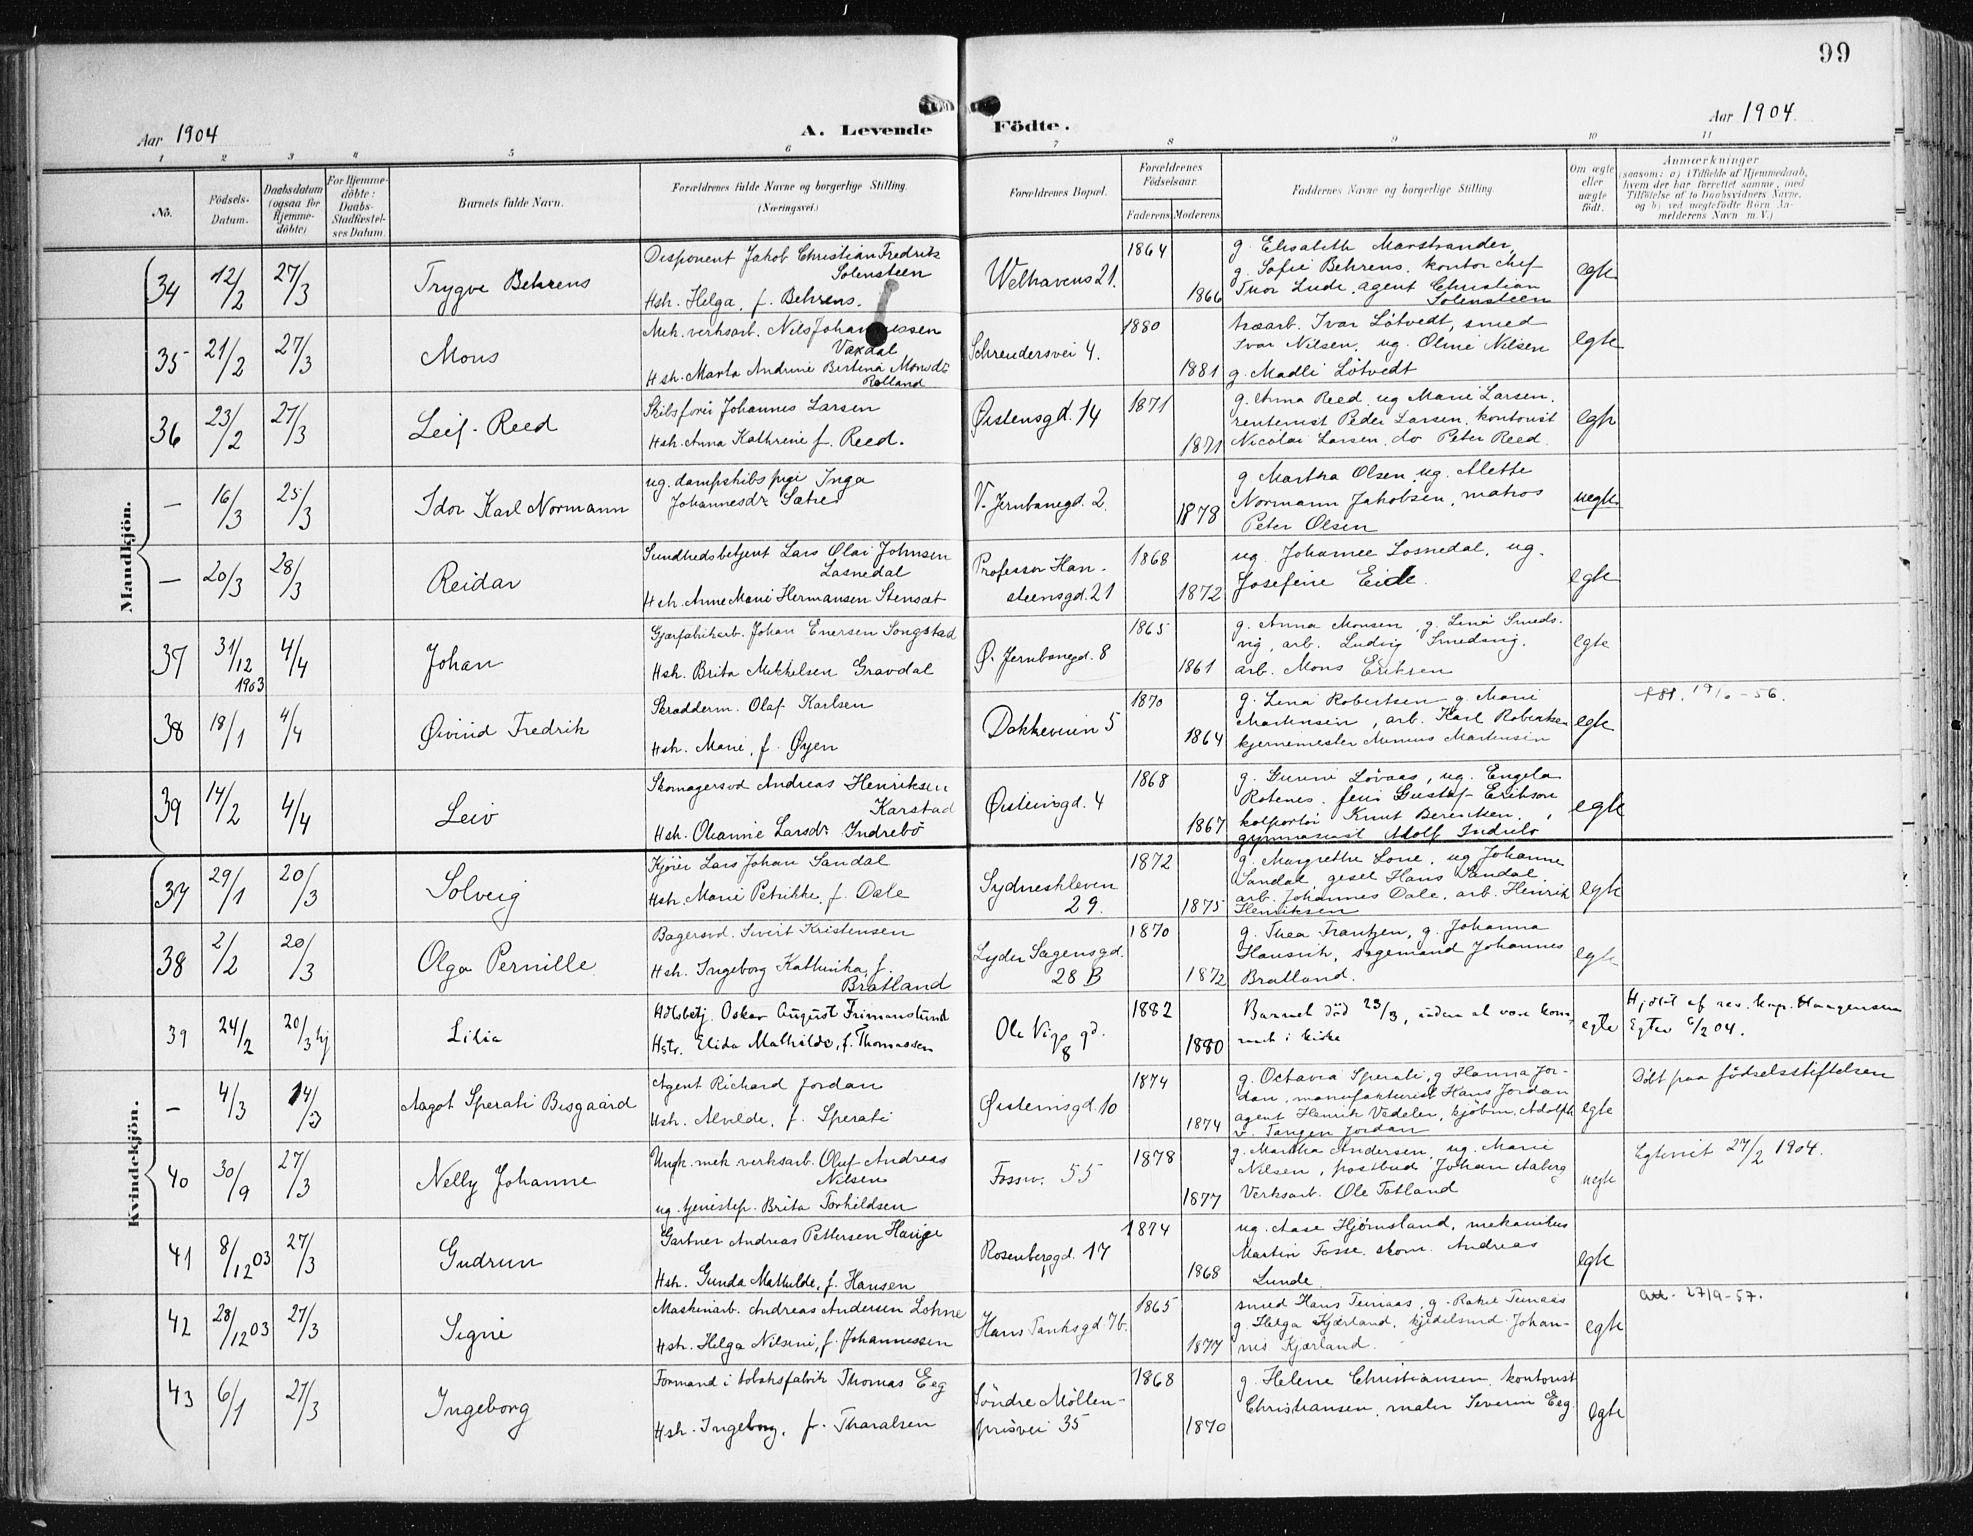 99
Aar 1904
A. Levende Födte.
Aar 1904
1 2 3 4 5 6 7 8 9 10 11
No.
Födsels-Datum.
Daabsdatum (ogsaa for Hjemme-döbte)
For Hjemme-döbte: Daabs-Stadfæstel-ses Datum.
Barnets fulde Navn.
Forældrenes fulde Navne og borgerlige Stilling.
(Næringsvei.)
Forældrenes Bopæl.
Forældrenes Födselsaar.
Faderens Moderens
Faddernes Navne og borgerlige Stilling.
Om ægte eller uægte födt.
Anmærkninger
(saasom: a) i Tilfælde af Hjemmedaab,
hvem der har forrettet samme, med
Tilföielse af to Daabsvidners Navne,
og b) ved uægtefödte Börn An-
melderens Navn m. V.)
Mandkjön.
34 12/2 27/3 Trygve Behrens
Disponent Jakob Christian Fredrik
Solensteen
Hstr. Helga, f. Behrens.
Welhavens 21.
1864 1866
g. Elisabeth Marstrander,
g. Sofie Behrens, kontorchef
Thor Lude, agent Christian
Solensteen
egte
35 21/2 27/3 Mons
Mek. verksarb. Nils Johannessen
Vaxdal
Hstr. Marta Andrine Bertina Monsdr
Rolland
Schreudersvei 4.
1880 1881
træarb. Ivar Lötvedt, smed
Ivar Nilsen, ug. Oline Nilsen
g. Madli Lötvedt
egte
36 23/2 27/3 Leif Reed
Skibsförer Johannes Larsen
Hstr. Anna Kathrine f. Reed.
Øistensgd. 14
1871 1871
g. Anna Reed, ug Marie Larsen,
rentenist Peder Larsen, kontorist
Nicolai Larsen, do Peter Reed.
egte
— 16/3 25/3 Idor Karl Normann
ug. dampskibspige Inga
Johannesdr Sætre
V. Jernbanegd. 2.
1878
g Martha Olsen, ug. Alette
Normann Jakobsen, matros
Peter Olsen
uegte
— 20/3 28/3 Reidar
Sundhedsbetjent Lars Olai Johnsen
Losnedal
Hstr. Anne Marie Hermansen Stensæt
Professor Han-
steensgd. 21
1868 1872
ug. Johanne Losnedal, ug.
Josefine Eide.
egte
37 31/12 1903 4/4 Johan
Gjærfabrikarb. Johan Enersen Songstad
Hstr. Brita Mikkelsen Gravdal
Ø. Jernbanegd. 8
1865 1861
g. Anna Monsen, g. Lina Smeds-
vig, arb. Ludvig Smedsvig,
arb. Mons Eriksen
egte
38 18/1 4/4 Øivind Fredrik
Skrædderm. Olaf Karlsen
Hstr. Marie, f. Øyen
Dokkeveien 5
1870 1864
g. Lina Robertsen, g. Marie
Martinsen, arb. Karl Robertsen
kjernemester Martinsen
egte
39 14/2 4/4 Leiv
Skomagersvd Andreas Henriksen
Karstad
Hstr. Oleanne Larsdr Indrebö
Øisteinsgd. 4
1868 1867
g. Gunni Lövaas, ug. Engela
Rotenes, Gustaf Erikson
kolportör Knut Berentsen,
gymnasiast Adolf Indrebö
egte
Kvindekjön.
37 29/1 20/3 Solveig
Kjörer Lars Johan Sandal
Hstr. Marie Petrikke, f. Dale
Sydneskleven
29.
1872 1875
g. Margrethe Lone, ug Johanne
Sandal, gesel Hans Sandal,
arb. Johannes Dale, arb. Henrik
Henriksen
egte
38 2/2 20/3 Olga Pernille
Bagersvd. Sivert Kristensen
Hstr. Ingeborg Kathinka, f.
Bratland
Lyder Sagensgd.
28 B
1870 1872
g. Thea Frantzen, g. Johanna
Hausvik, dagemand Johannes
Bratland.
egte
39 24/2 20/3 hj Lilia
Hdlsbetj. Oskar August Frimanslund
Hstr. Elida Mathilde, f. Thomassen
Ole Vigs gd.
8
1882 1880
Barnet död 23/3, uden at være kom-
met i kirke
egte
Hjdöbt af res. kap. Haagensen
Egtev 6/2 04.
— 4/3 14/3 Aagot Sperati Bisgaard
Agent Richard Jordan
Hstr. Alvilde, f. Sperati
Øisteinsgd. 10
1874 1874
g. Octavia Sperati, g Hanna Jor-
dan, manufakturist Hans Jordan
agent Henrik Vedeler, kjöbm. Adolph
v. Tangen Jordan
egte
Döbt paa födselsstiftelsen
40 30/9 27/3 Nelly Johanne
Ungk. mek verksarb. Oluf Andreas
Nilsen
ug. tjenistep. Brita Torkildsen
Fossv. 55
1878 1877
g. Martha Andersen, ug. Marie
Nilsen, postbud Johan Aaberg
Verksarb. Ole Totland
uegte
Egteviet 27/2 1904.
41 8/12 03 27/3 Gudrun
Gartner Andreas Pettersen Hauge
Hstr. Gunda Mathilde, f. Hansen
Rosenberggd. 17
1874 1868
ug. Aase Hjörnsland, mekanikus
Martin Fosse, skom. Andreas
Lunde.
egte
42 28/12 03 27/3 Signe
Maskinarb. Andreas Andersen Lohne
Hstr. Helga Nilsine, f. Johannessen
Hans Tanksgd. 7b.
1865 1877
smed Hans Teinaas, g. Rakel Teinaas
g. Helga Kjærland, kjedelsmd. Johan-
nes Kjærland.
egte
att. 27/9-57.
43 6/1 27/3 Ingeborg
Formand i tobaksfabrik Thomas Eeg
Hstr. Ingeborg, f. Tharalsen
Söndre Möllen-
prisvei 35
1868 1870
g. Helene Christiansen, kontorist
Christiansen, maler Severin Eeg
egte